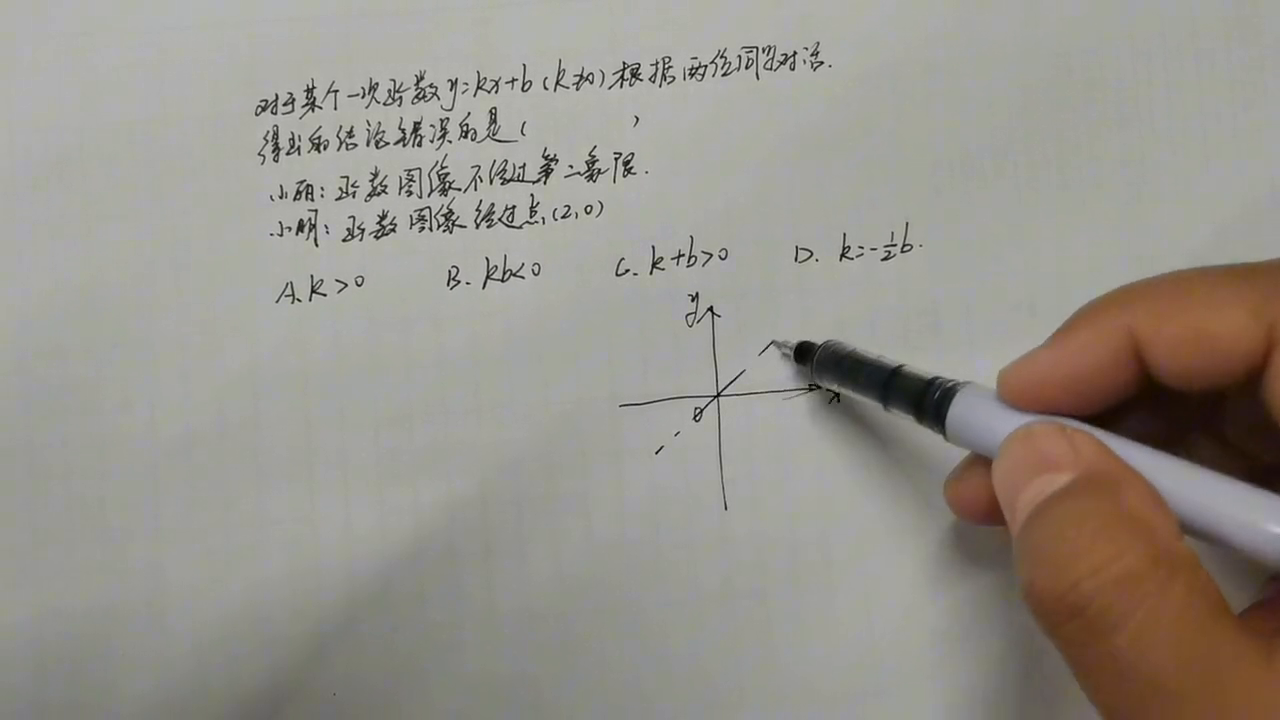 对于某个一次函数y=kx+b(k≠0)根据两位同学对话.
得出的结论错误的是(    )
小丽:函数图像不经过第二象限.
小明:函数图像经过点(2,0)
A.k>0 B.kb<0 C.k+b>0 D.k=-1/2b.
y
0 x